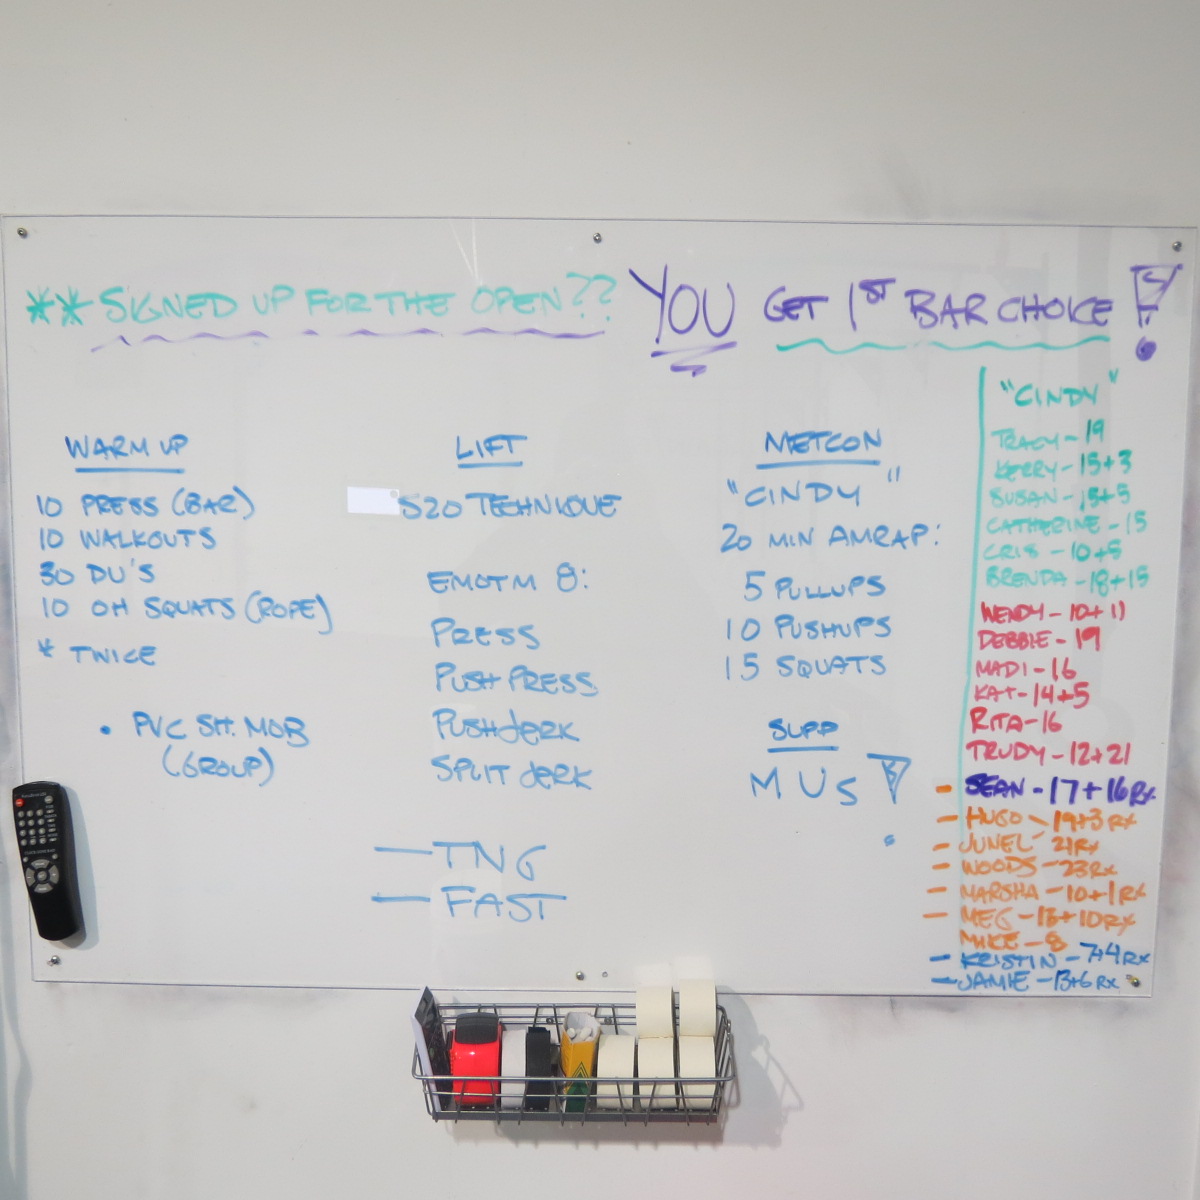 ** SIGNED UP FOR THE OPEN?? YOU GET 1ST BAR CHOICE!
WARM UP
10 PRESS (BAR)
10 WALKOUTS
30 DU'S
10 OH SQUATS (ROPE)
* TWICE
• PVC SH. MOB
(GROUP)
LIFT
S2O TECHNIQUE
EMOTM 8:
PRESS
PUSH PRESS
PUSH JERK
SPLIT JERK
— TNG
— FAST
METCON
"CINDY"
20 MIN AMRAP:
5 PULLUPS
10 PUSHUPS
15 SQUATS
SUPP
MUs!
"CINDY"
TRACY - 19
KERRY - 15+3
SUSAN - 15+5
CATHERINE - 15
CRIS - 10+5
BRENDA - 18+15
WENDY - 10+11
DEBBIE - 19
MADI - 16
KAT - 14+5
RITA - 16
TRUDY - 12+21
- SEAN - 17+16 Rx
- HUGO - 19+3 Rx
- JUNEL - 21 Rx
- WOODS - 23 Rx
- MARSHA - 10+1 Rx
- MEG - 13+10 Rx
MIKE - 8
- KRISTIN - 7+4 Rx
- JAMIE - 13+6 Rx